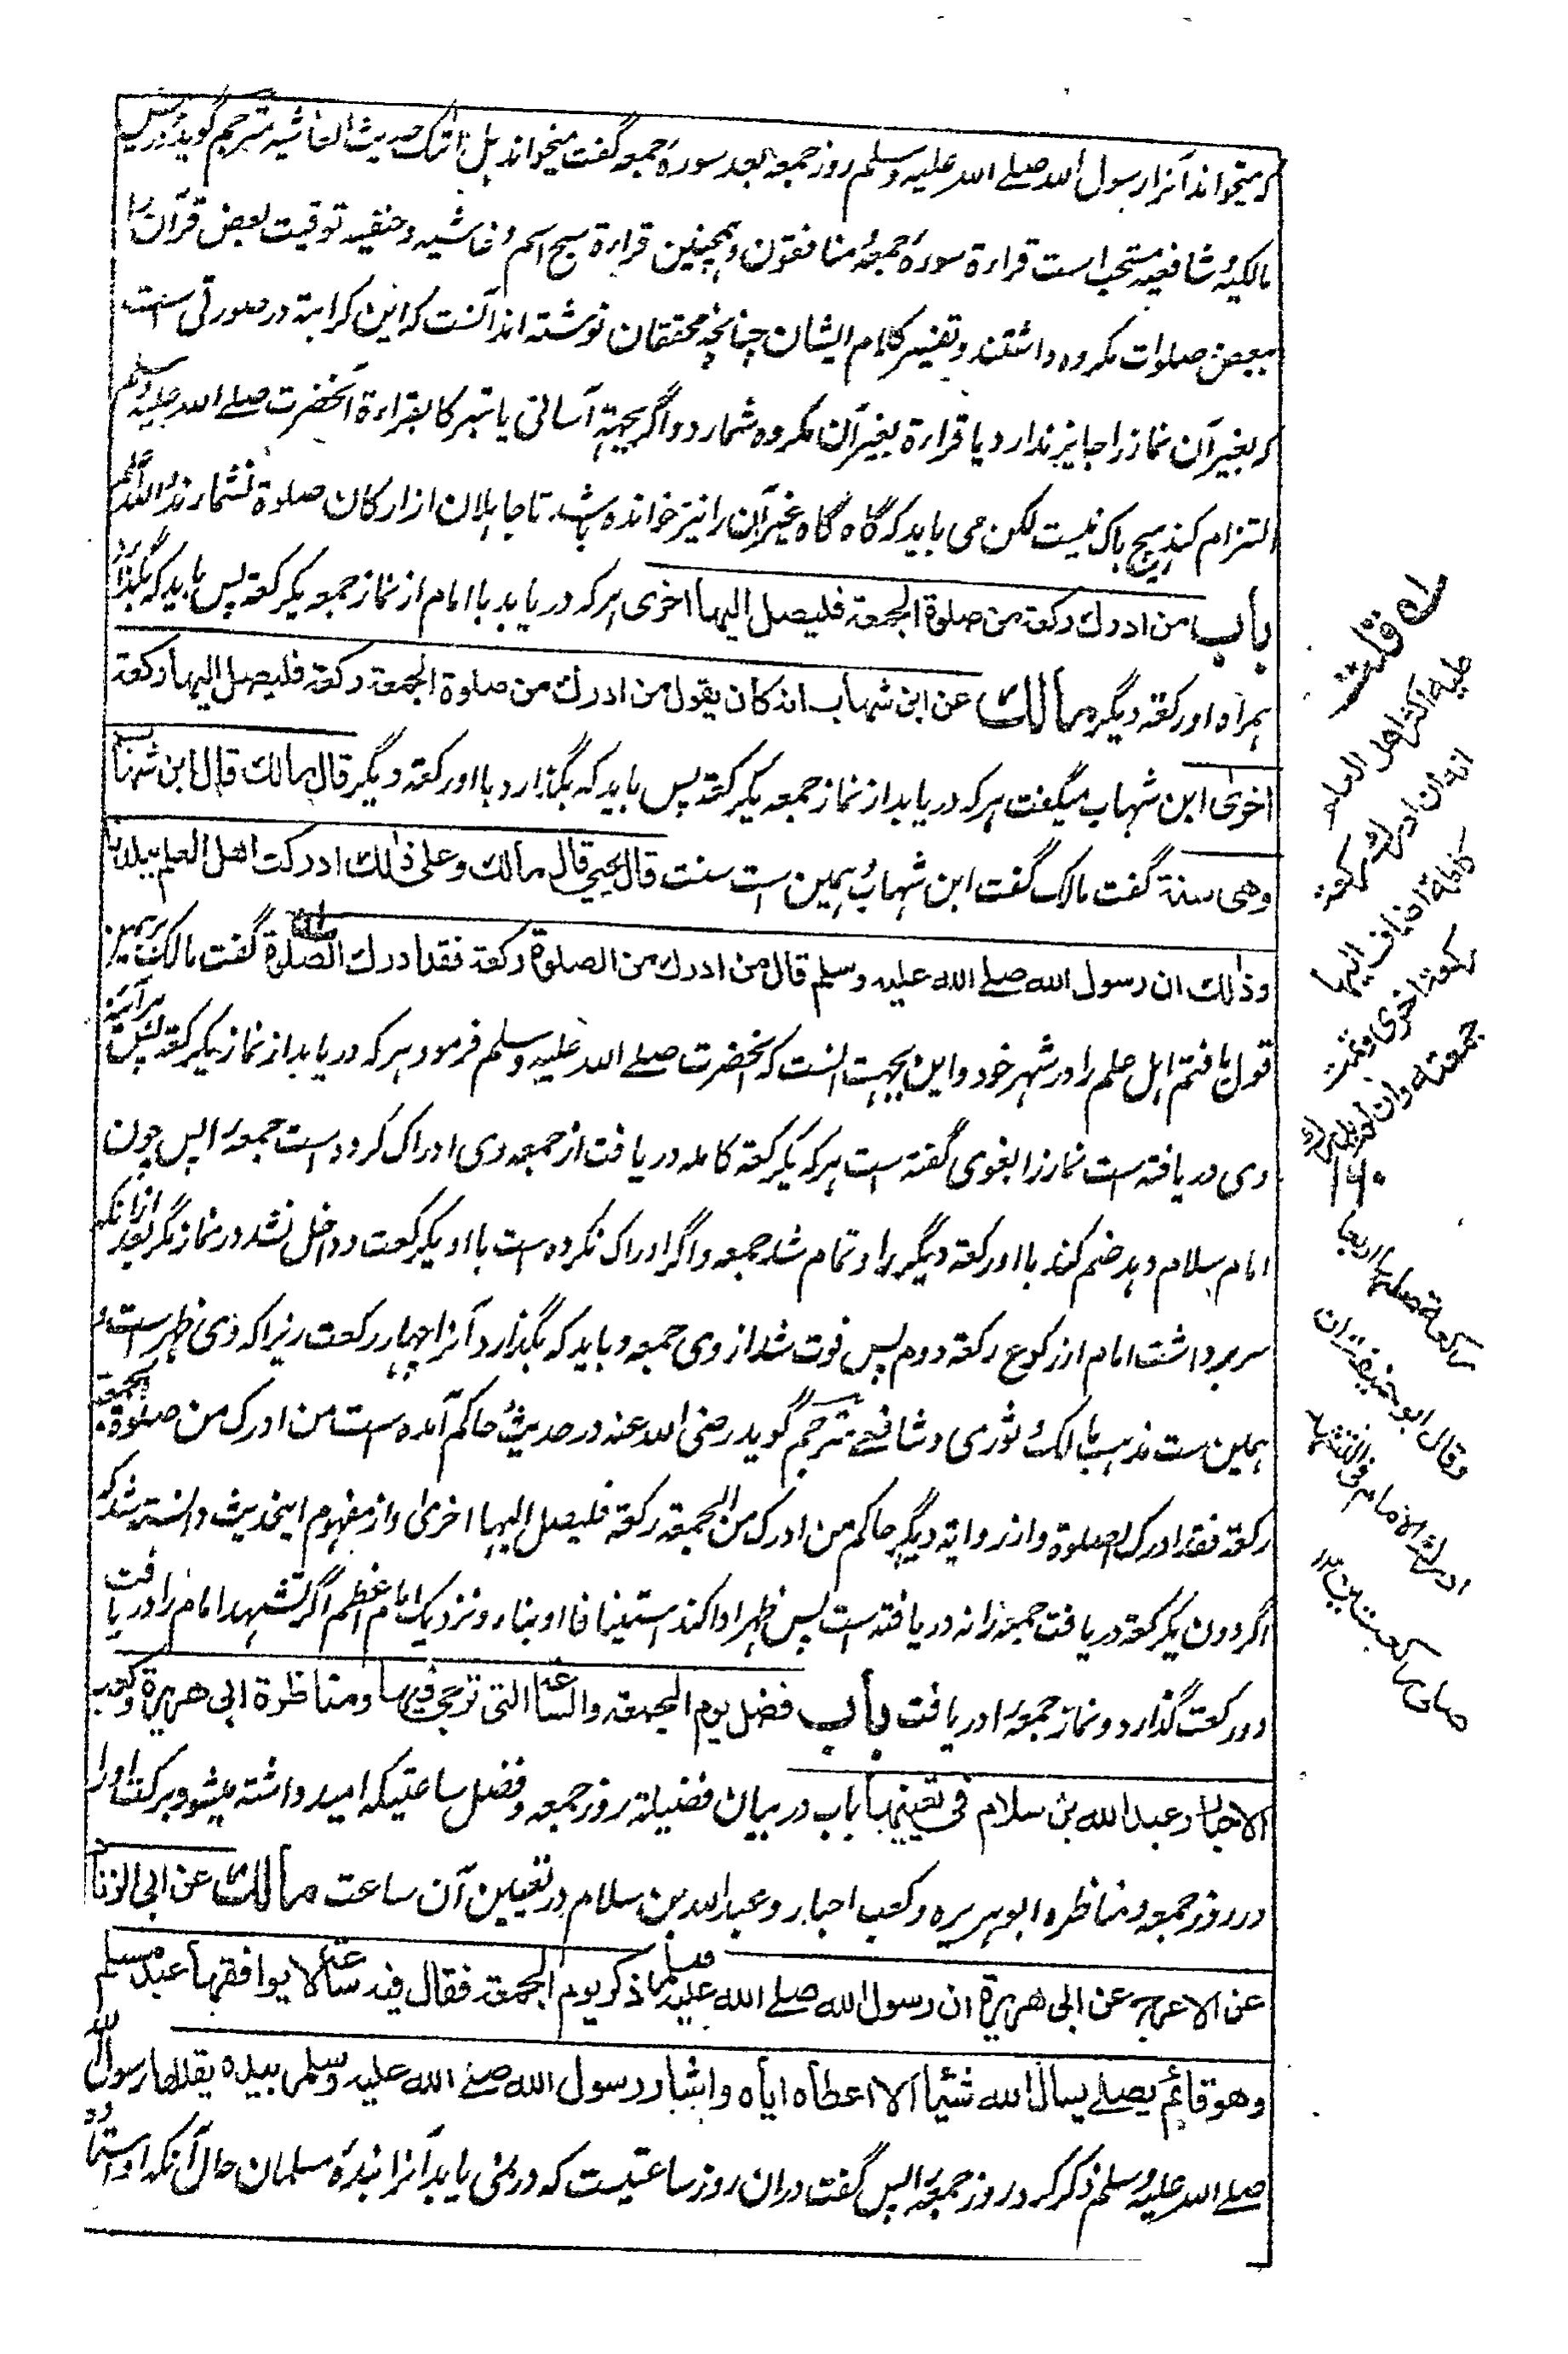 که میخواند آنرا رسول الله صلے الله علیه وسلم روز جمعه بعد سورۀ جمعه گفت میخواند هل اتٰک حدیث الغاشیه مترجم گوید نزدیک
مالکیه و شافعیه مستحب است قراءة سورۀ جمعه و منافقون و همچنین قراءة سبح اسم و غاشیه و حنفیه توقیت بعض قرآن را
ببعض صلوات مکروه داشتند و تفسیر کلام ایشان چنانچه محققان نوشته اند آنست که این کراهة در صورتی است
که بغیر آن نماز را جایز ندارد یا قراءة بغیر آن مکروه شمارد و اگر بجهة آسانی یا تبرکا بقراءة آنحضرت صلے الله علیه وسلم
التزام کند هیچ باک نیست لکن می باید که گاه گاه غیر آن را نیز خوانده باشد تا جاهلان از ارکان صلوة نشمارند و الله اعلم
باب من ادرك ركعة من صلوة الجمعة فليصل اليها اخرى هر که دریابد با امام از نماز جمعه یکرکعة پس باید که بگذارد
همراه او رکعة دیگر مالك عن ابن شهاب انه كان يقول من ادرك من صلوة الجمعة ركعة فليصل اليها ركعة
اخرى ابن شهاب میگفت هر که دریابد از نماز جمعه یکرکعة پس باید که بگذارد با او رکعة دیگر قال مالك قال ابن شهاب
وهى سنة گفت مالک گفت ابن شهاب و همین است سنت قال يحيى قال مالك وعلى ذلك ادركت اهل العلم ببلدنا
وذلك ان رسول الله صلے الله عليه وسلم قال من ادرك من الصلوة ركعة فقد ادرك الصلوة گفت مالک برهمین
قول یافتم اهل علم را در شهر خود و این بجهت آنست که آنحضرت صلے الله علیه وسلم فرمود هر که دریابد از نماز یکرکعة پس هرآئینه
وی دریافته است نماز را بغوی گفته است هر که یکرکعة کامله دریافت از جمعه وی ادراک کرده است جمعه را پس چون
امام سلام دهد ضم کند با او رکعة دیگر را و تمام شد جمعه و اگر ادراک نکرده است با او یکرکعت و داخل نشد در نماز مگر بعد ازانکه
سر برداشت امام از رکوع رکعة دوم پس فوت شد از وی جمعه و باید که بگذارد آنرا چهار رکعت زیرا که وی ظهر است و
همین ست مذهب مالک و ثوری و شافعے مترجم گوید رضی الله عنه در حدیث حاکم آمده است من ادرک من صلوة الجمعة
رکعة فقد ادرک الصلوة و از روایة دیگر حاکم من ادرک من الجمعة رکعة فلیصل الیها اخری و از مفهوم اینحدیث دانسته شد که
اگر دون یکرکعة دریافت جمعه را نه دریافته است پس ظهر ادا کند استینافا او بناء و نزدیک امام اعظم اگر تشهد امام را دریافت
دو رکعت گذارد و نماز جمعه را دریافت باب فضل يوم الجمعة والساعة التى ترجى فيها ومناظرة ابى هريرة وكعب
الاحبار وعبد الله بن سلام فى تعيينها باب در بیان فضیلة روز جمعه و فضل ساعتیکه امید داشته میشود برکت او را
در روز جمعه و مناظره ابوهریره و کعب احبار و عبدالله بن سلام در تعیین آن ساعت مالك عن ابى الزناد
عن الاعرج عن ابى هريرة ان رسول الله صلے الله عليه وسلم ذكر يوم الجمعة فقال فيه ساعة لا يوافقها عبد مسلم
وهو قائم يصلے يسال الله شيئا الا اعطاه اياه واشار رسول الله صلے الله عليه وسلم بيده يقللها رسول الله
صلے الله علیه وسلم ذکر کرد روز جمعه را پس گفت دران روز ساعتیست که در نمی یابد آنرا بندۀ مسلمان حال آنکه او استاده
له قلت
عليه اكثر اهل العلم
انه ان ادرك ركعة
كاملة اضاف اليها
ركعة اخرى وتمت
جمعته وان لم يدرك
١٢٠
ركعة صلاها اربعا
وقال ابو حنيفة ان
ادرك الامام فى التشهد
صلى ركعتين ١٢